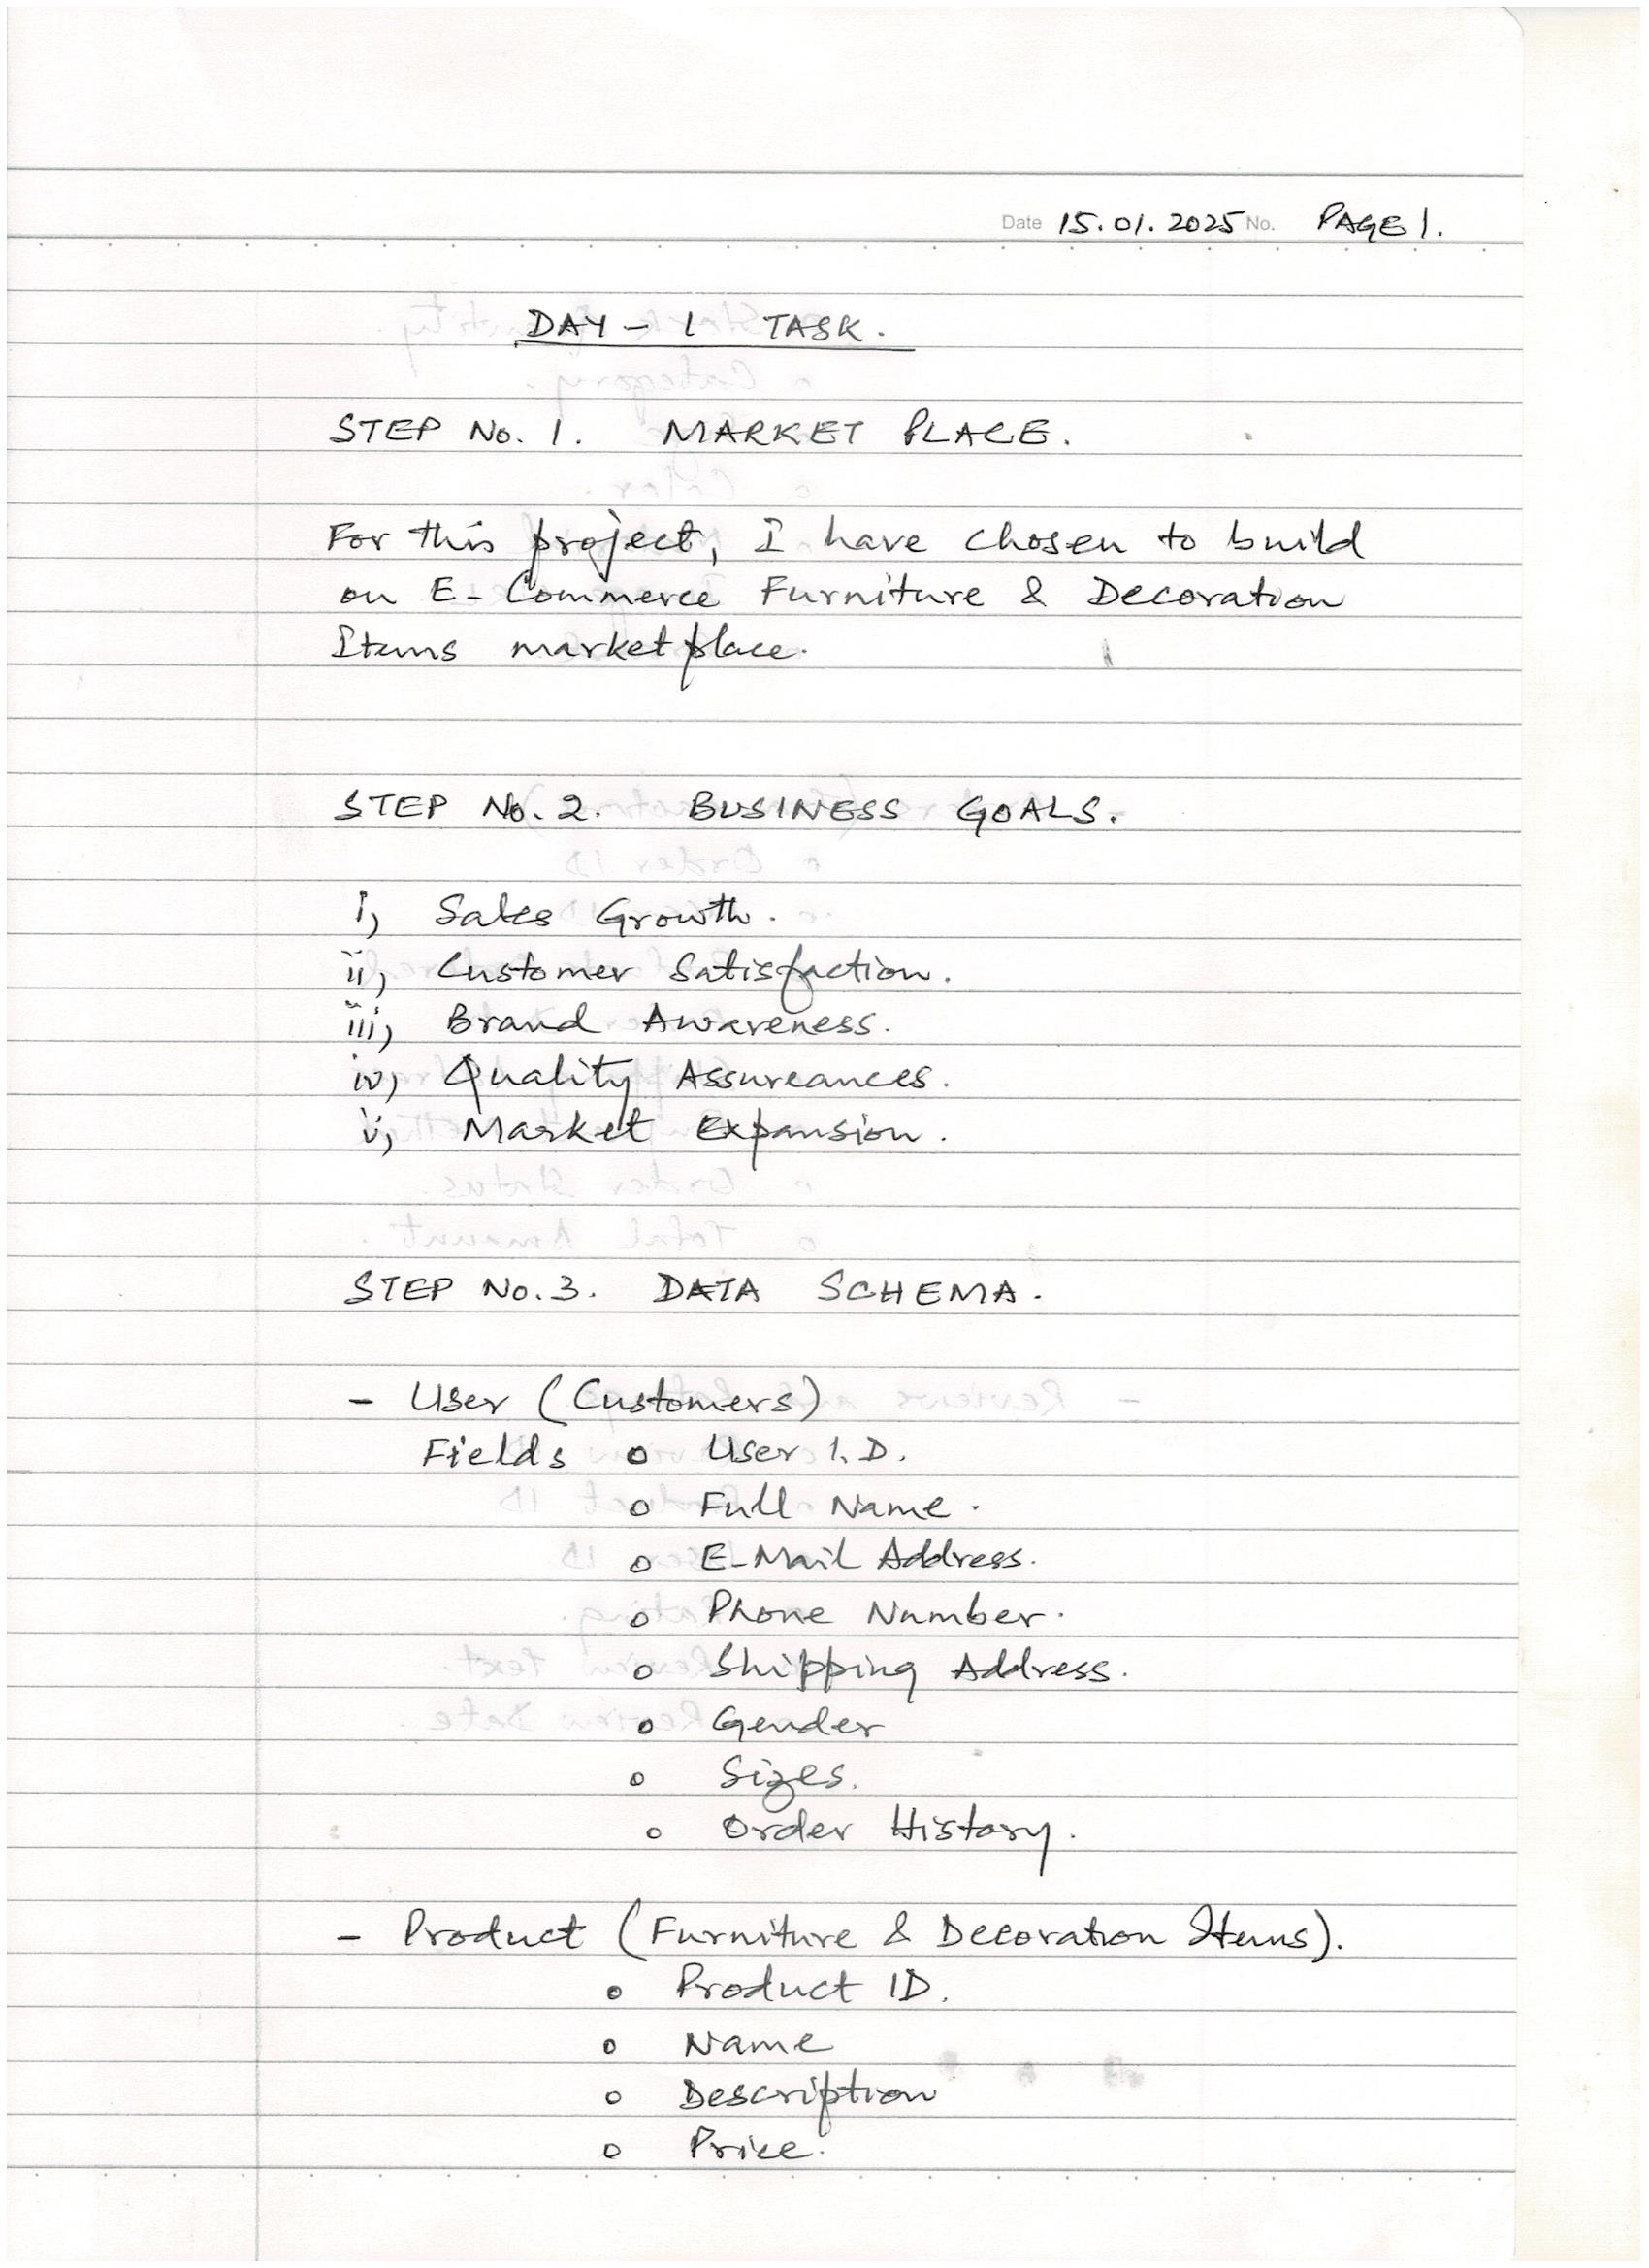 Date 15.01.2025 No. PAGE 1.
DAY - 1 TASK.
STEP No. 1. MARKET PLACE.
For this project, I have chosen to build
on E-Commerce Furniture & Decoration
Items marketplace.
STEP No. 2. BUSINESS GOALS.
i) Sales Growth.
ii) Customer Satisfaction.
iii) Brand Awareness.
iv) Quality Assureances.
v) Market Expansion.
STEP No. 3. DATA SCHEMA.
- User (Customers)
Fields o User I.D.
o Full Name.
o E-Mail Address.
o Phone Number.
o Shipping Address.
o Gender
o Sizes.
o Order History.
- Product (Furniture & Decoration Items).
o Product ID.
o Name
o Description
o Price.